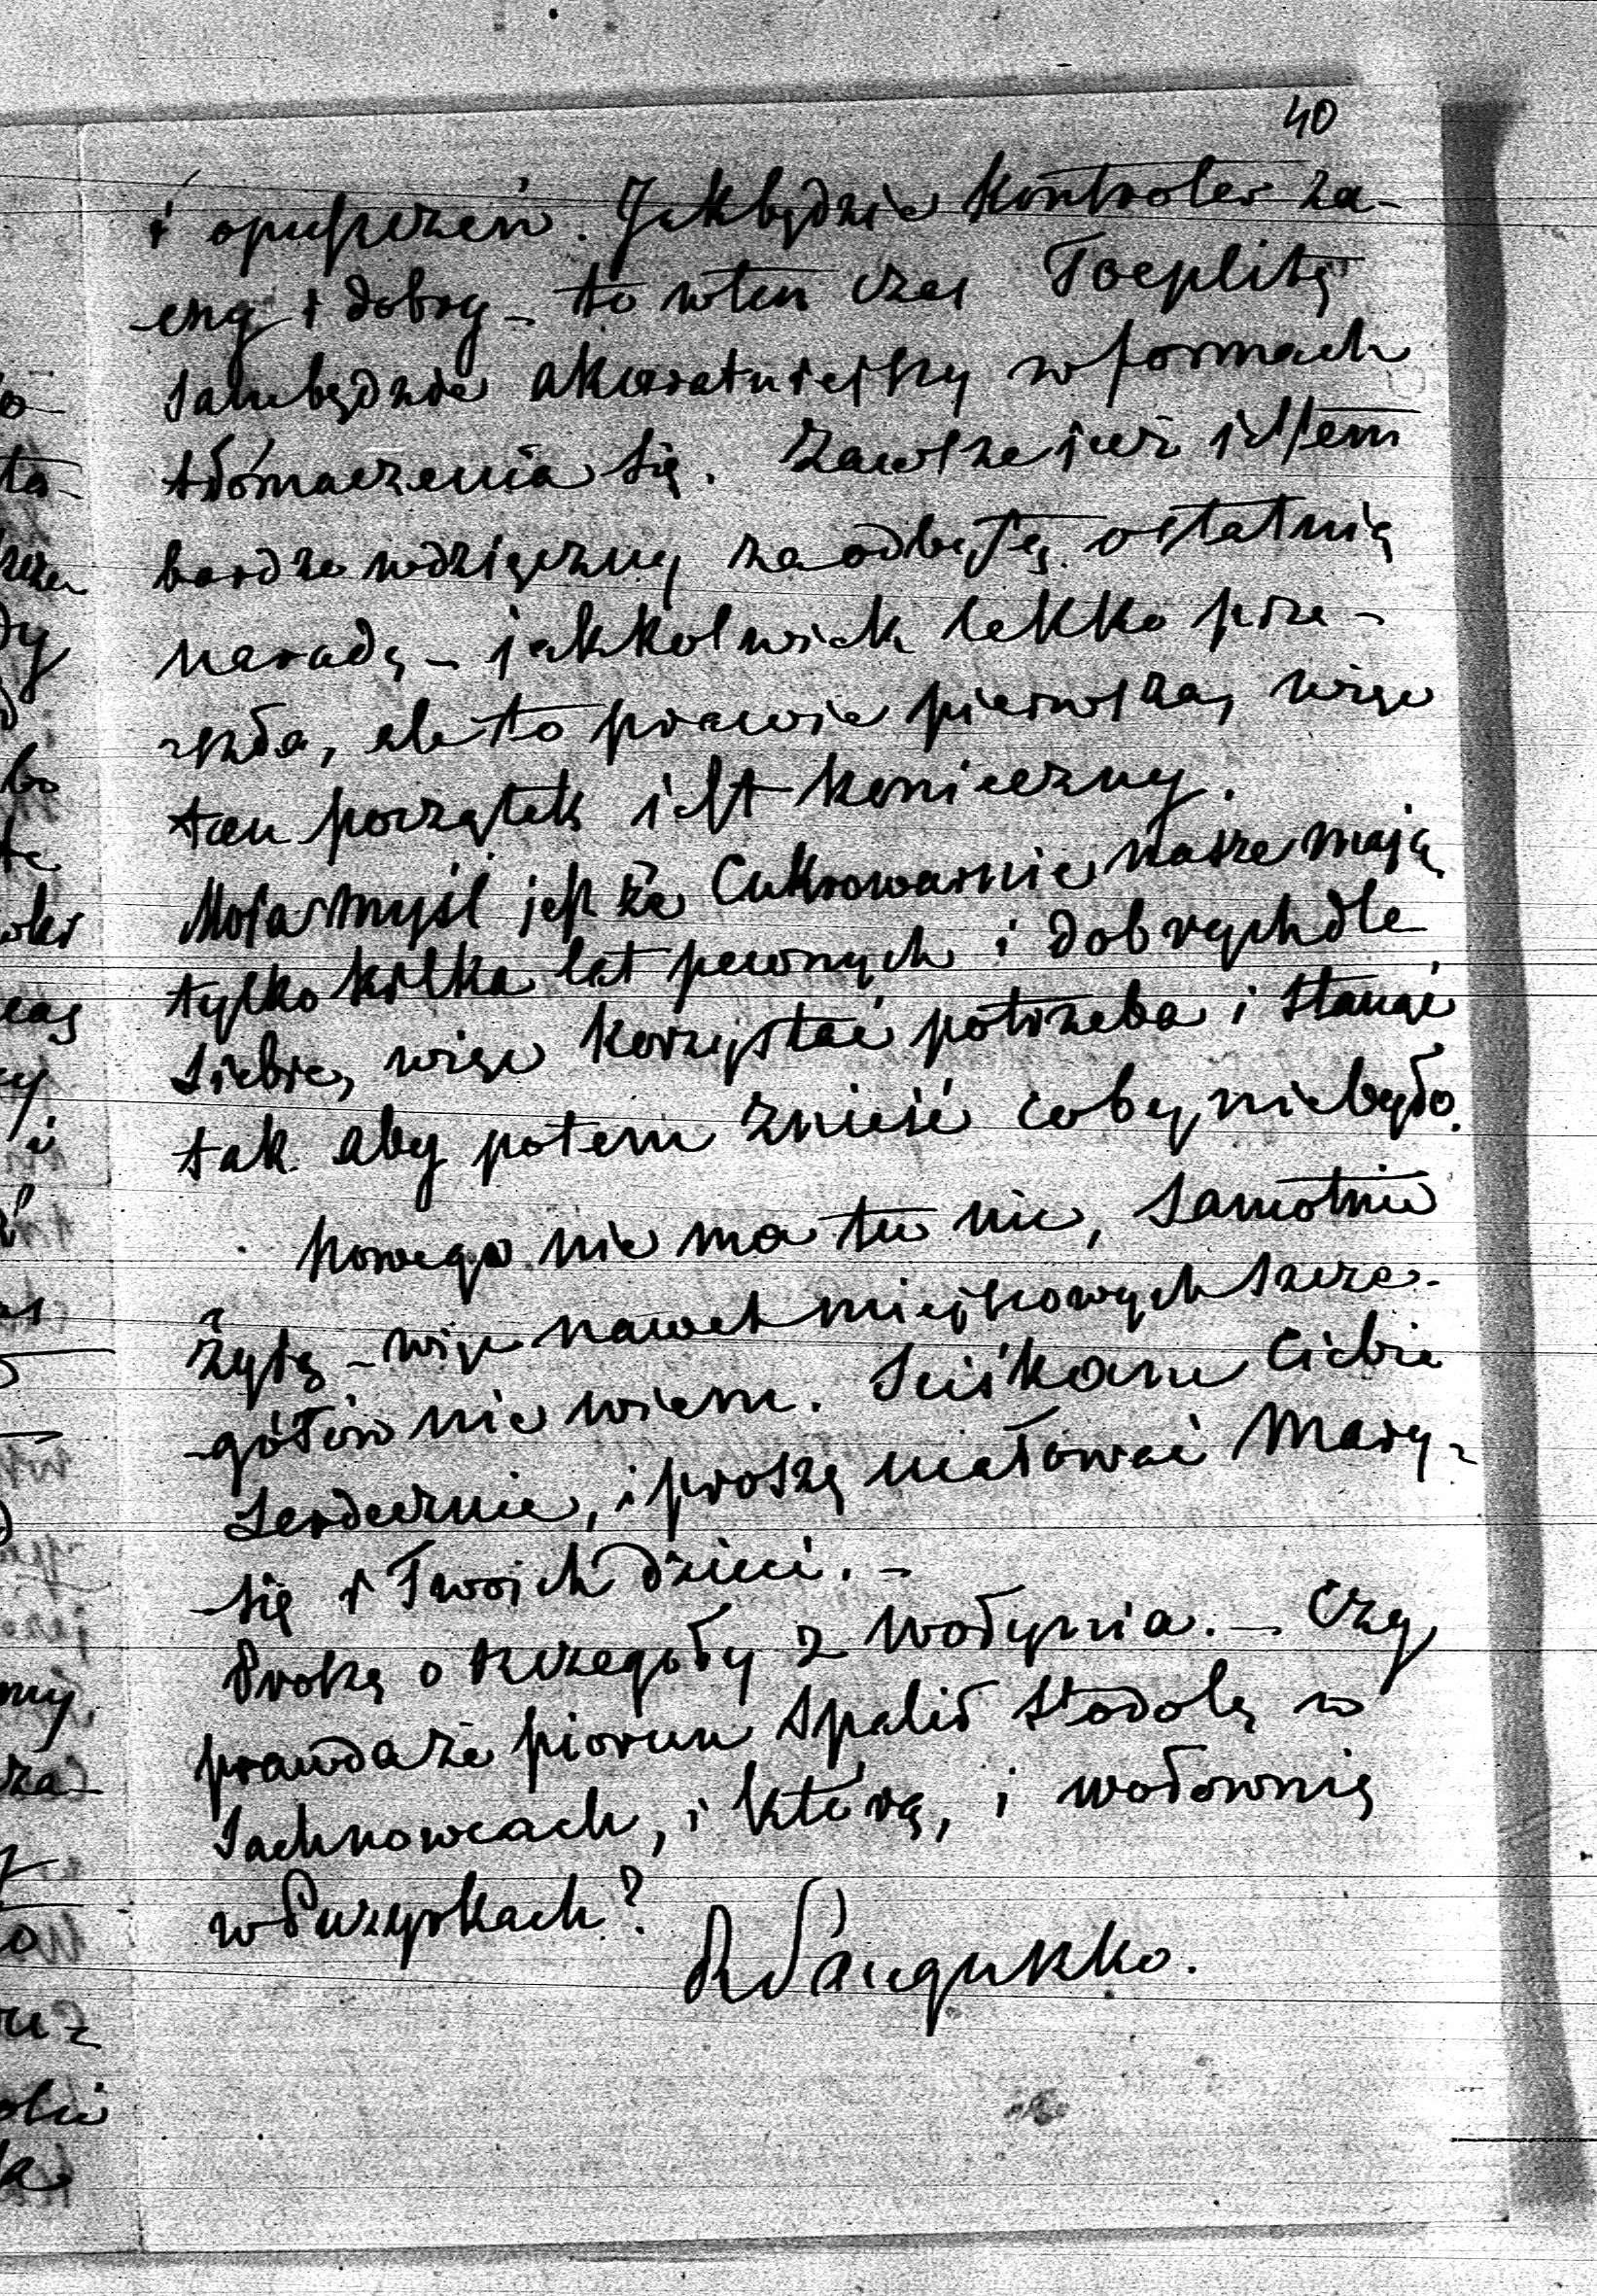 40
i opuszczeń. Jak będzie kontroler za-
cny i dobry – to w ten czas Toeplitz
sam będzie akuratniejszy w formach
tłómaczenia się. Zawsze już jestem
bardzo wdzięczny za odbytą ostatnią
naradę – jakkolwiek lekko prze-
szła, ale to prawie pierwsza, więc
ten początek jest konieczny.
Moja myśl jest że Cukrowarnie nasze mają
tylko kilka lat pewnych i dobrych dla
siebie, więc korzystać potrzeba i stanąć
tak aby potem znieść coby niebyło.
Nowego nie ma tu nic, samotnie
żyję – więc nawet miejscowych szcze-
gółów nie wiem. Sciskam Ciebie
serdecznie, i proszę ucałować Mary-
się i Twoich dzieci. –
Proszę o szczegóły z Wołynia. – Czy
prawda że piorun spalił stodołę w
Sachnowcach, i którą, i wołownię
w Puzyrkach?
R Sanguszko.